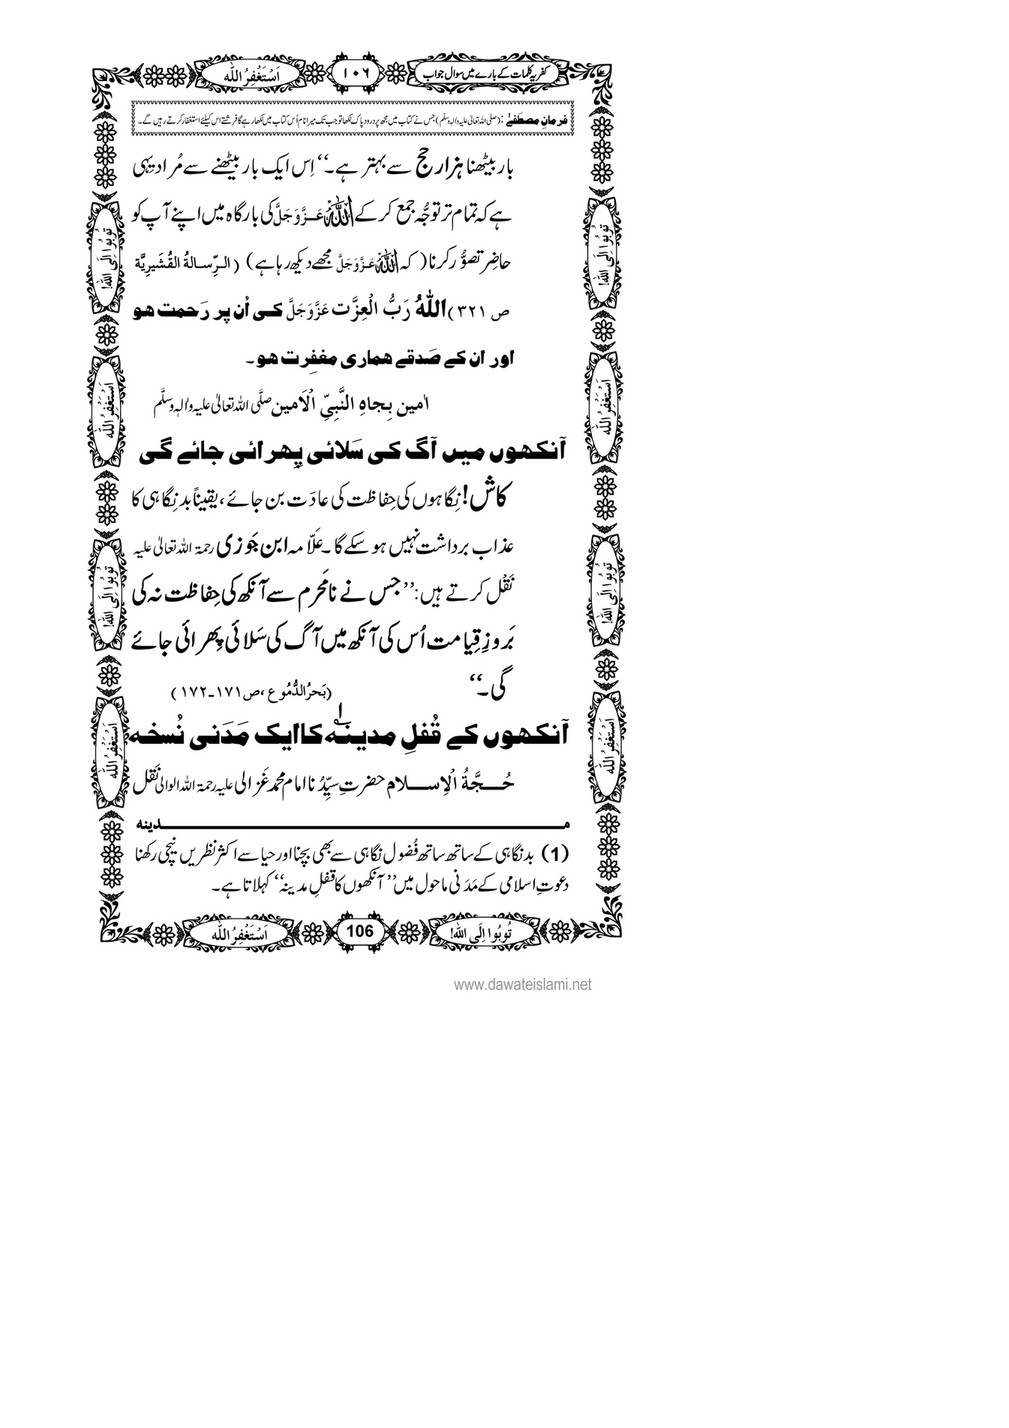 کفریہ کلمات کے بارے میں سوال جواب
١٠٦
اَسْتَغْفِرُ اللّٰه
فرمانِ مصطَفٰے : (صلی اللہ تعالیٰ علیہ والہٖ وسلّم) جس نے کتاب میں مجھ پر درود پاک لکھا تو جب تک میرا نام اُس کتاب میں لکھا رہے گا فرشتے اس کیلئے استغفار کرتے رہیں گے۔
بار بیٹھنا ہزار حج سے بہتر ہے۔‘‘ اِس ایک بار بیٹھنے سے مُراد یِہی
ہے کہ تمام تر توجُّہ جمع کر کے اللہ عَزَّوَجَلَّ کی بارگاہ میں اپنے آپ کو
حاضِر تصوُّر کرنا (کہ اللہ عَزَّوَجَلَّ مجھے دیکھ رہا ہے) (الرِّسالةُ القُشَيرِيَّة
ص ۳۲۱) اَللّٰهُ رَبُّ الْعِزَّت عَزَّوَجَلَّ کی اُن پر رَحمت ہو
اور ان کے صَدقے ہماری مغفِرت ہو۔
اٰمین بِجاہِ النَّبِیِّ الْاَمین صلَّی اللہ تعالیٰ علیہ واٰلہٖ وسلَّم
آنکھوں میں آگ کی سَلائی پِھرائی جائے گی
کاش! نِگاہوں کی حِفاظت کی عادَت بن جائے، یقیناً بدنِگاہی کا
عذاب برداشت نہیں ہوسکے گا۔ علّامہ ابن جَوزی رحمۃ اللہ تعالیٰ علیہ
نَقْل کرتے ہیں: ’’جس نے نامَحرم سے آنکھ کی حِفاظت نہ کی
بَروزِ قِیامت اُس کی آنکھ میں آگ کی سَلائی پِھرائی جائے
گی۔‘‘ (بَحرُ الدُّمُوع ،ص ۱۷۱۔۱۷۲)
آنکھوں کے قُفلِ مدینہ۱؎ کا ایک مَدَنی نُسخہ
حُجَّةُ الْاِسلام حضرتِ سیِّدُنا امام محمد غَزالی علیہ رحمۃ اللہ الوالی نَقل
مـدینه
(1) بدنگاہی کے ساتھ ساتھ فُضُول نگاہی سے بھی بچنا اور حیا سے اکثر نظریں نیچی رکھنا
دعوتِ اسلامی کے مَدَنی ماحول میں ’’آنکھوں کا قفلِ مدینہ‘‘ کہلاتا ہے۔
تُوبُوا اِلَى اللّٰه!
106
اَسْتَغْفِرُ اللّٰه
تُوبُوا اِلَى اللّٰه!
اَسْتَغْفِرُ اللّٰه
تُوبُوا اِلَى اللّٰه!
اَسْتَغْفِرُ اللّٰه
تُوبُوا اِلَى اللّٰه!
اَسْتَغْفِرُ اللّٰه
تُوبُوا اِلَى اللّٰه!
اَسْتَغْفِرُ اللّٰه
www.dawateislami.net